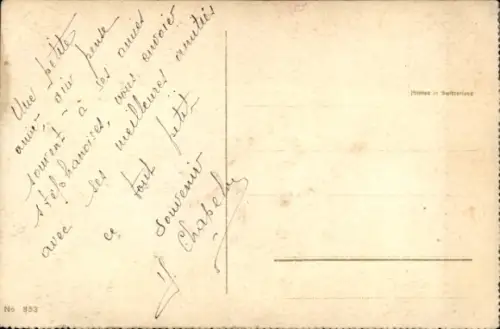 Une petite
amie, qui pense
souvent à ses amies
stéphanoises, vous envoie
avec ses meilleures amitiés
ce tout petit
souvenir
Y. Chapelu
Printed in Switzerland
No 552